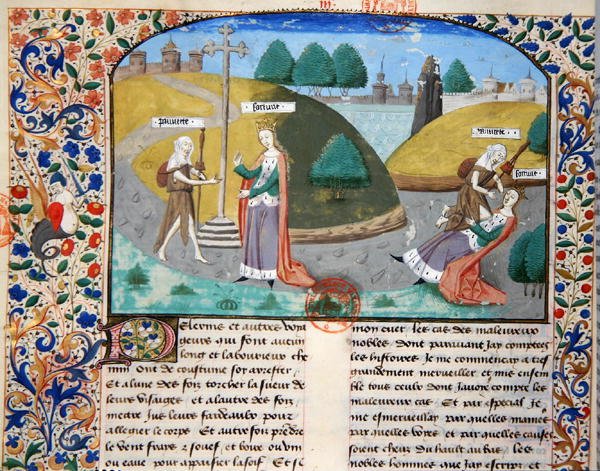 pauurete
fortune
pauurete
fortune
Pelerins et autres voya
geurs qui font aucun
long et labourieux che
min ont de coustume soy arrester
Et alune des foiz torcher la sueur de
leurs visaiges et alautre des foiz
mectre jus leurs fardeaulx pour
allegier le corps Et autre foiz prendre
le vent fraiz et souef et boire ou vin
ou eaue pour apaisier la soif Et
mon cuer les cas des maleureux
nobles dont parauant jay compter
les histoires Je me commencay
grandement merueiller et mis ensem
ble tous ceulx dont jauoye compte les
maleureux cas Et par especial Je
me esmerueillay par quelles manie
par quelles voyes et par quelles causes
soient cheuz du hault au bas les
nobles hommes que jay escript